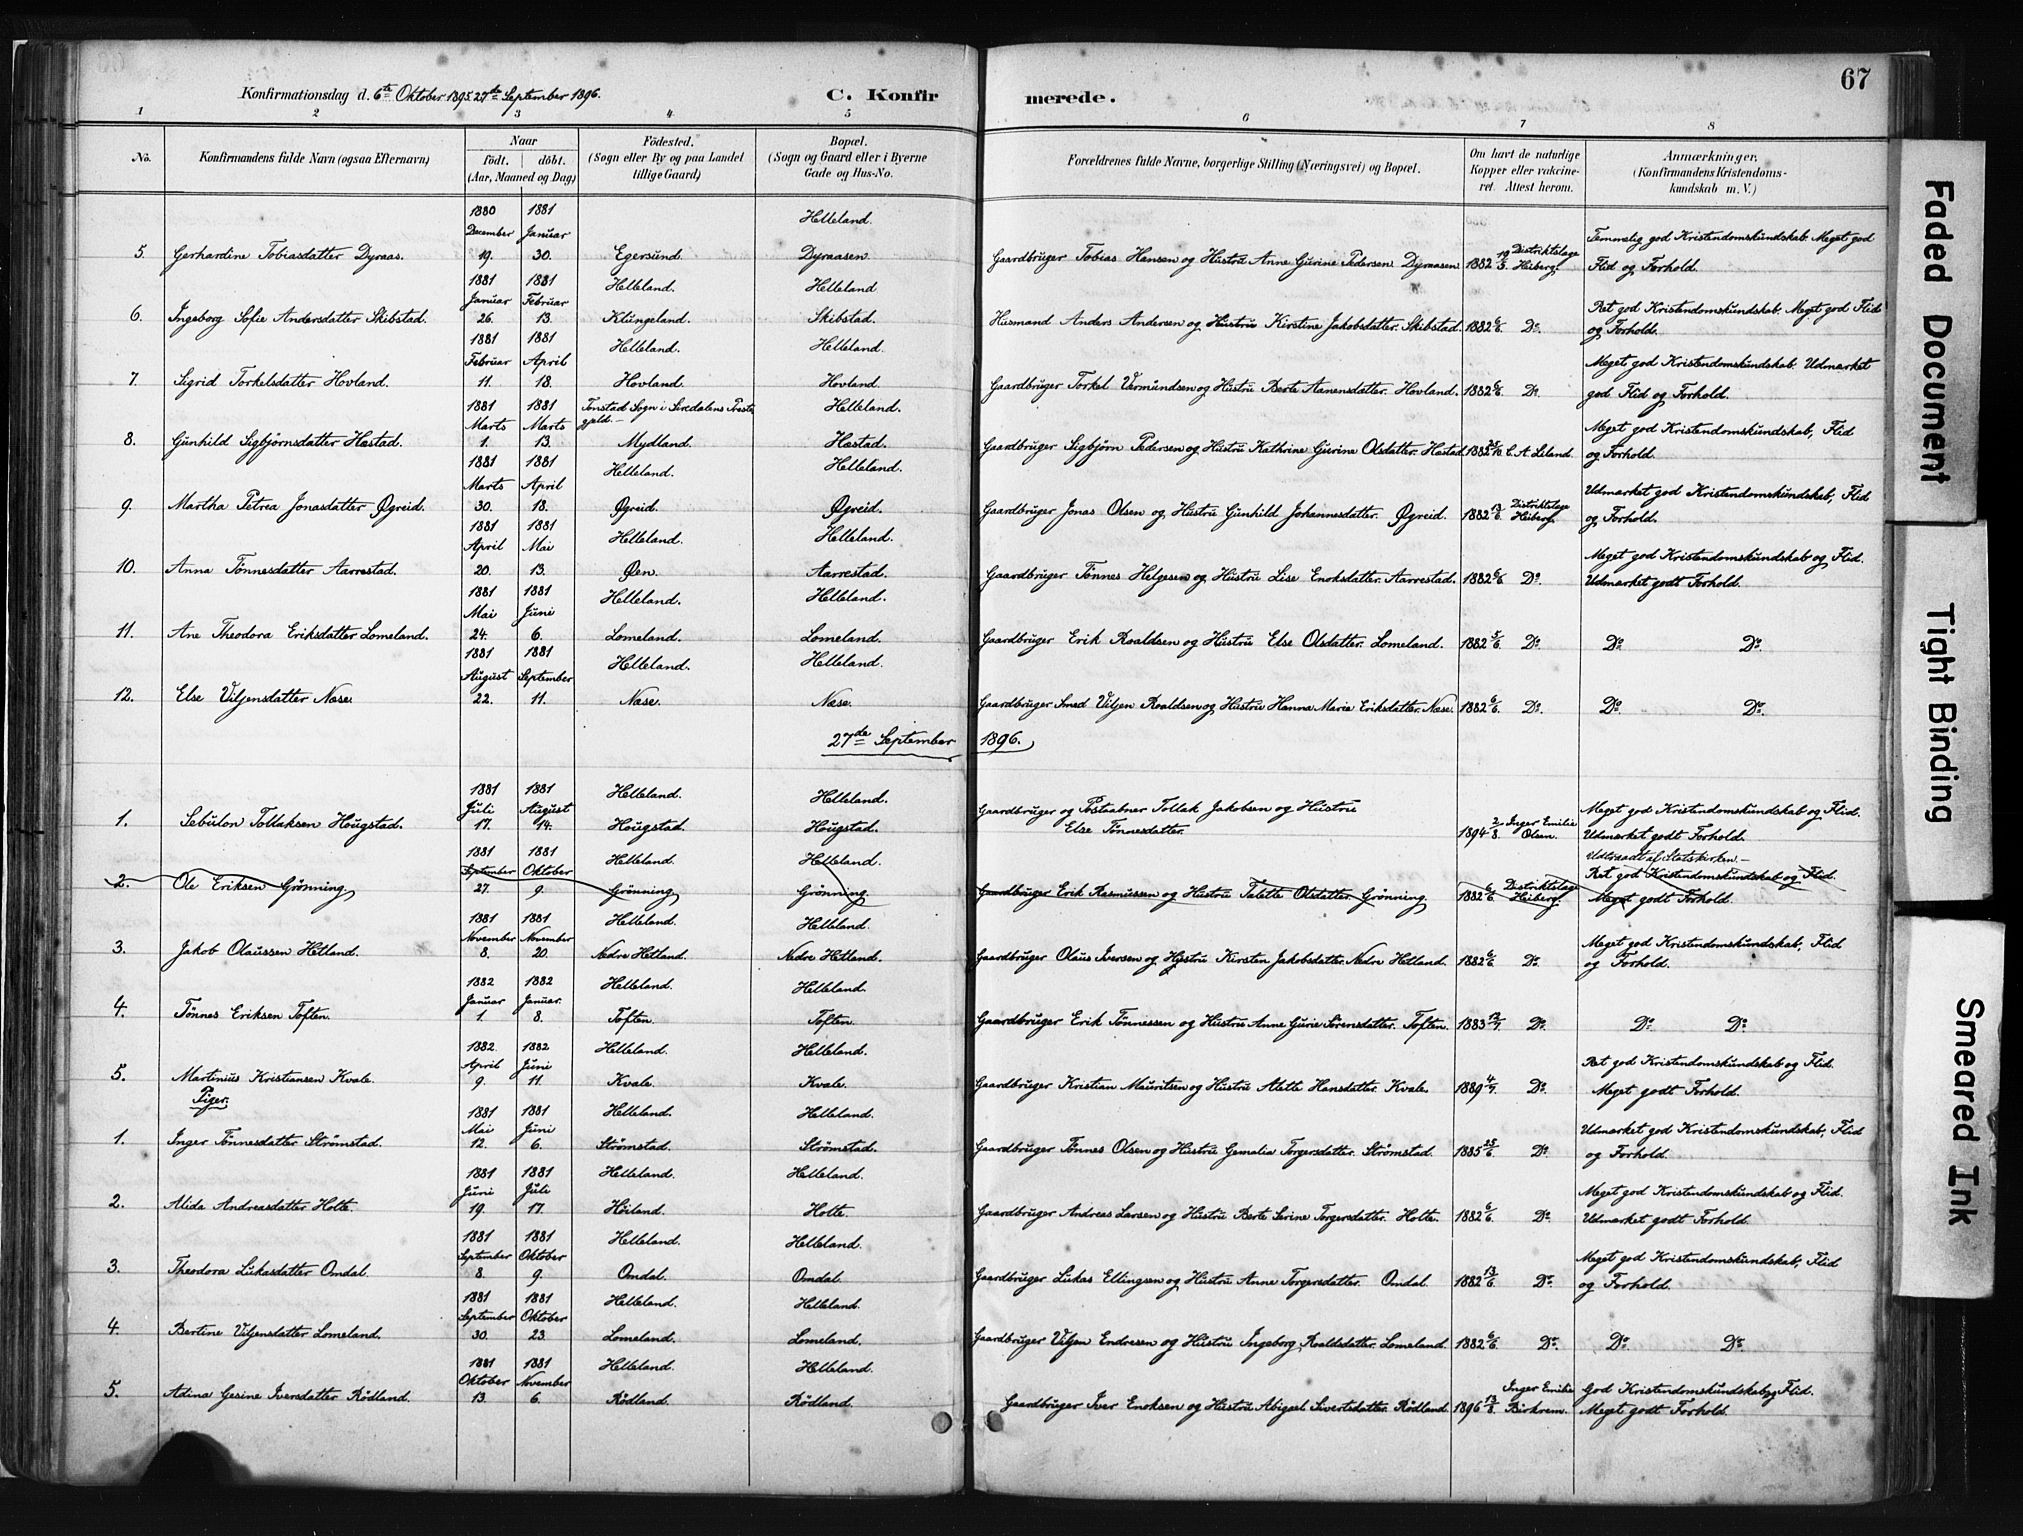 67
Konfirmationsdag d. 6te Oktober 1895. 27de September 1896.
C. Konfir
merede.
1 2 3 4 5 6 7 8
No.
Konfirmandens fulde Navn (ogsaa Efternavn)
Naar
födt. döbt.
(Aar, Maaned og Dag)
Födested.
(Sogn eller By og paa Landet
tillige Gaard)
Bopæl.
(Sogn og Gaard eller i Byerne
Gade og Hus-No.
Forældrenes fulde Navne, borgerlige Stilling (Næringsvei) og Bopæl.
Om havt de naturlige
Kopper eller vakcine-
ret. Attest herom.
Anmærkninger,
(Konfirmandens Kristendoms-
kundskab m. V.)
1880 1881 Helleland.
December Januar
5. Gerhardine Tobiasdatter Dyraas. 19. 30. Egersund. Dyraasen. Gaardbruger Tobias Hansen og Hustru Anne Gurine Pedersen Dyraasen 1882 19/3. Distriktslæge Heiberg. Temmelig god Kristendomskundskab. Meget god
Flid og Forhold.
1881 1881 Helleland. Helleland
Januar Februar
6. Ingeborg Sofie Andersdatter Skibstad. 26. 13. Klungeland. Skibstad. Husmand Anders Andersen og Hustru Kirstine Jakobsdatter. Skibstad. 1882 6/6. Do. Ret god Kristendomskundskab. Meget god Flid
og Forhold.
1881 1881 Helleland. Helleland.
Februar April
7. Sigrid Torkelsdatter Hovland. 11. 18. Hovland. Hovland. Gaardbruger Torkel Vermundsen og Hustru Berte Aanensdatter. Hovland. 1882 6/6. Do. Meget god Kristendomskundskab. Udmærket
god Flid og Forhold.
1881 1881 Tonstad Sogn i Siredalens Præste Helleland.
Marts Marts gjeld.
8. Gunhild Sigbjørnsdatter Hæstad. 1. 13. Mydland. Hæstad. Gaardbruger Sigbjørn Pedersen og Hustru Kathrine Gurine Olsdatter. Hæstad. 1882 /10. C. A. Leland. Meget god Kristendomskundskab, Flid
og Forhold.
1881 1881 Helleland. Helleland.
Marts April
9. Martha Petrea Jonasdatter Øgreid. 30. 18. Øgreid. Øgreid. Gaardbruger Jonas Olsen og Hustru Gunhild Johannesdatter. Øgreid. 1882 13/6. Distriktslæge Heiberg. Udmærket god Kristendomskundskab, Flid
og Forhold.
1881 1881 Helleland. Helleland.
April Mai
10. Anna Tønnesdatter Aarrestad. 20. 13. Øen. Aarrestad. Gaardbruger Tønnes Helgesen og Hustru Lise Enoksdatter. Aarrestad. 1882 6/6. Do. Meget god Kristendomskundskab og Flid.
Udmærket godt Forhold.
1881 1881 Helleland. Helleland.
Mai Juni
11. Ane Theodora Eriksdatter Lomeland. 24. 6. Lomeland. Lomeland. Gaardbruger Erik Roaldsen og Hustru Else Olsdatter. Lomeland. 1882 5/6. Do. Do. Do.
1881 1881 Helleland. Helleland.
August September
12. Else Viljensdatter Næse. 22. 11. Næse. Næse. Gaardbruger Smed Viljen Roaldsen og Hustru Hanna Marie Eriksdatter. Næse. 1882 6/6. Do. Do. Do.
27de September 1896.
1881 1881 Helleland. Helleland.
Juli August
1. Sebulon Tollaksen Hougstad. 17. 14. Hougstad. Hougstad. Gaardbruger og Postaabner Tollak Jakobsen og Hustru
Else Tønnesdatter. 1894 2/8. Inger Emilie Olsen. Meget god Kristendomskundskab og Flid.
Udmærket godt Forhold.
1881 1881 Helleland. Helleland. Udtraadt af Statskirken.
September Oktober
2. Ole Eriksen Grønning 27. 9. Grønning Grønning. Gaardbruger Erik Rasmussen og Hustru Talette Olsdatter. Grønning. 1882 6/6. Distriktslæge Heiberg. Ret god Kristendomskundskab og Flid.
Meget godt Forhold.
1881 1881 Helleland. Helleland.
November November
3. Jakob Olaussen Hetland. 8. 20. Nedre Hetland. Nedre Hetland. Gaardbruger Olaus Iversen og Hustru Kirsten Jakobsdatter. Nedre Hetland. 1882 6/6. Do. Meget god Kristendomskundskab, Flid
og Forhold.
1882 1882 Helleland. Helleland.
Januar Januar.
4. Tønnes Eriksen Toften. 1. 8. Toften. Toften. Gaardbruger Erik Tønnessen og Hustru Anne Gurie Sørensdatter. Toften. 1883 12/7. Do. Do. Do.
1882 1882 Helleland. Helleland.
April Juni
5. Martinius Kristiansen Kvale. 9. 11. Kvale. Kvale. Gaardbruger Kristian Mauritsen og Hustru Alette Hansdatter. Kvale. 1889 4/7. Do. Ret god Kristendomskundskab og Flid.
Meget godt Forhold.
Piger.
1881 1881 Helleland. Helleland.
Mai Juni
1. Inger Tønnesdatter Strømstad. 12. 6. Strømstad. Strømstad. Gaardbruger Tønnes Olsen og Hustru Gemalia Torgersdatter. Strømstad. 1885 25/6. Do. Udmærket god Kristendomskundskab, Flid
og Forhold.
1881 1881 Helleland. Helleland.
Juni Juli
2. Alida Andreasdatter Holte. 19. 17. Høiland. Holte. Gaardbruger Andreas Larsen og Hustru Berte Serine Torgersdatter. Holte. 1882 6/6. Do. Meget god Kristendomskundskab og Flid.
Udmærket godt Forhold.
1881 1881 Helleland. Helleland.
September Oktober
3. Theodora Lukasdatter Omdal. 8. 9. Omdal. Omdal. Gaardbruger Lukas Ellingsen og Hustru Anne Torgersdatter. Omdal. 1882 13/6. Do. Meget god Kristendomskundskab, Flid
og Forhold.
1881 1881 Helleland. Helleland.
September Oktober
4. Bertine Viljensdatter Lomeland. 30. 23. Lomeland. Lomeland. Gaardbruger Viljen Endresen og Hustru Ingeborg Roaldsdatter. Lomeland. 1882 6/6. Do. Do. Do.
1881 1881 Helleland. Helleland.
Oktober November
5. Adina Gesine Iversdatter Rødland. 13. 6. Rødland. Rødland. Gaardbruger Iver Enoksen og Hustru Abigael Sivertsdatter. Rødland. 1896 13/8. Inger Emilie Birkrem. God Kristendomskundskab og Flid.
Meget godt Forhold.
Faded Document
Tight Binding
Smeared Ink